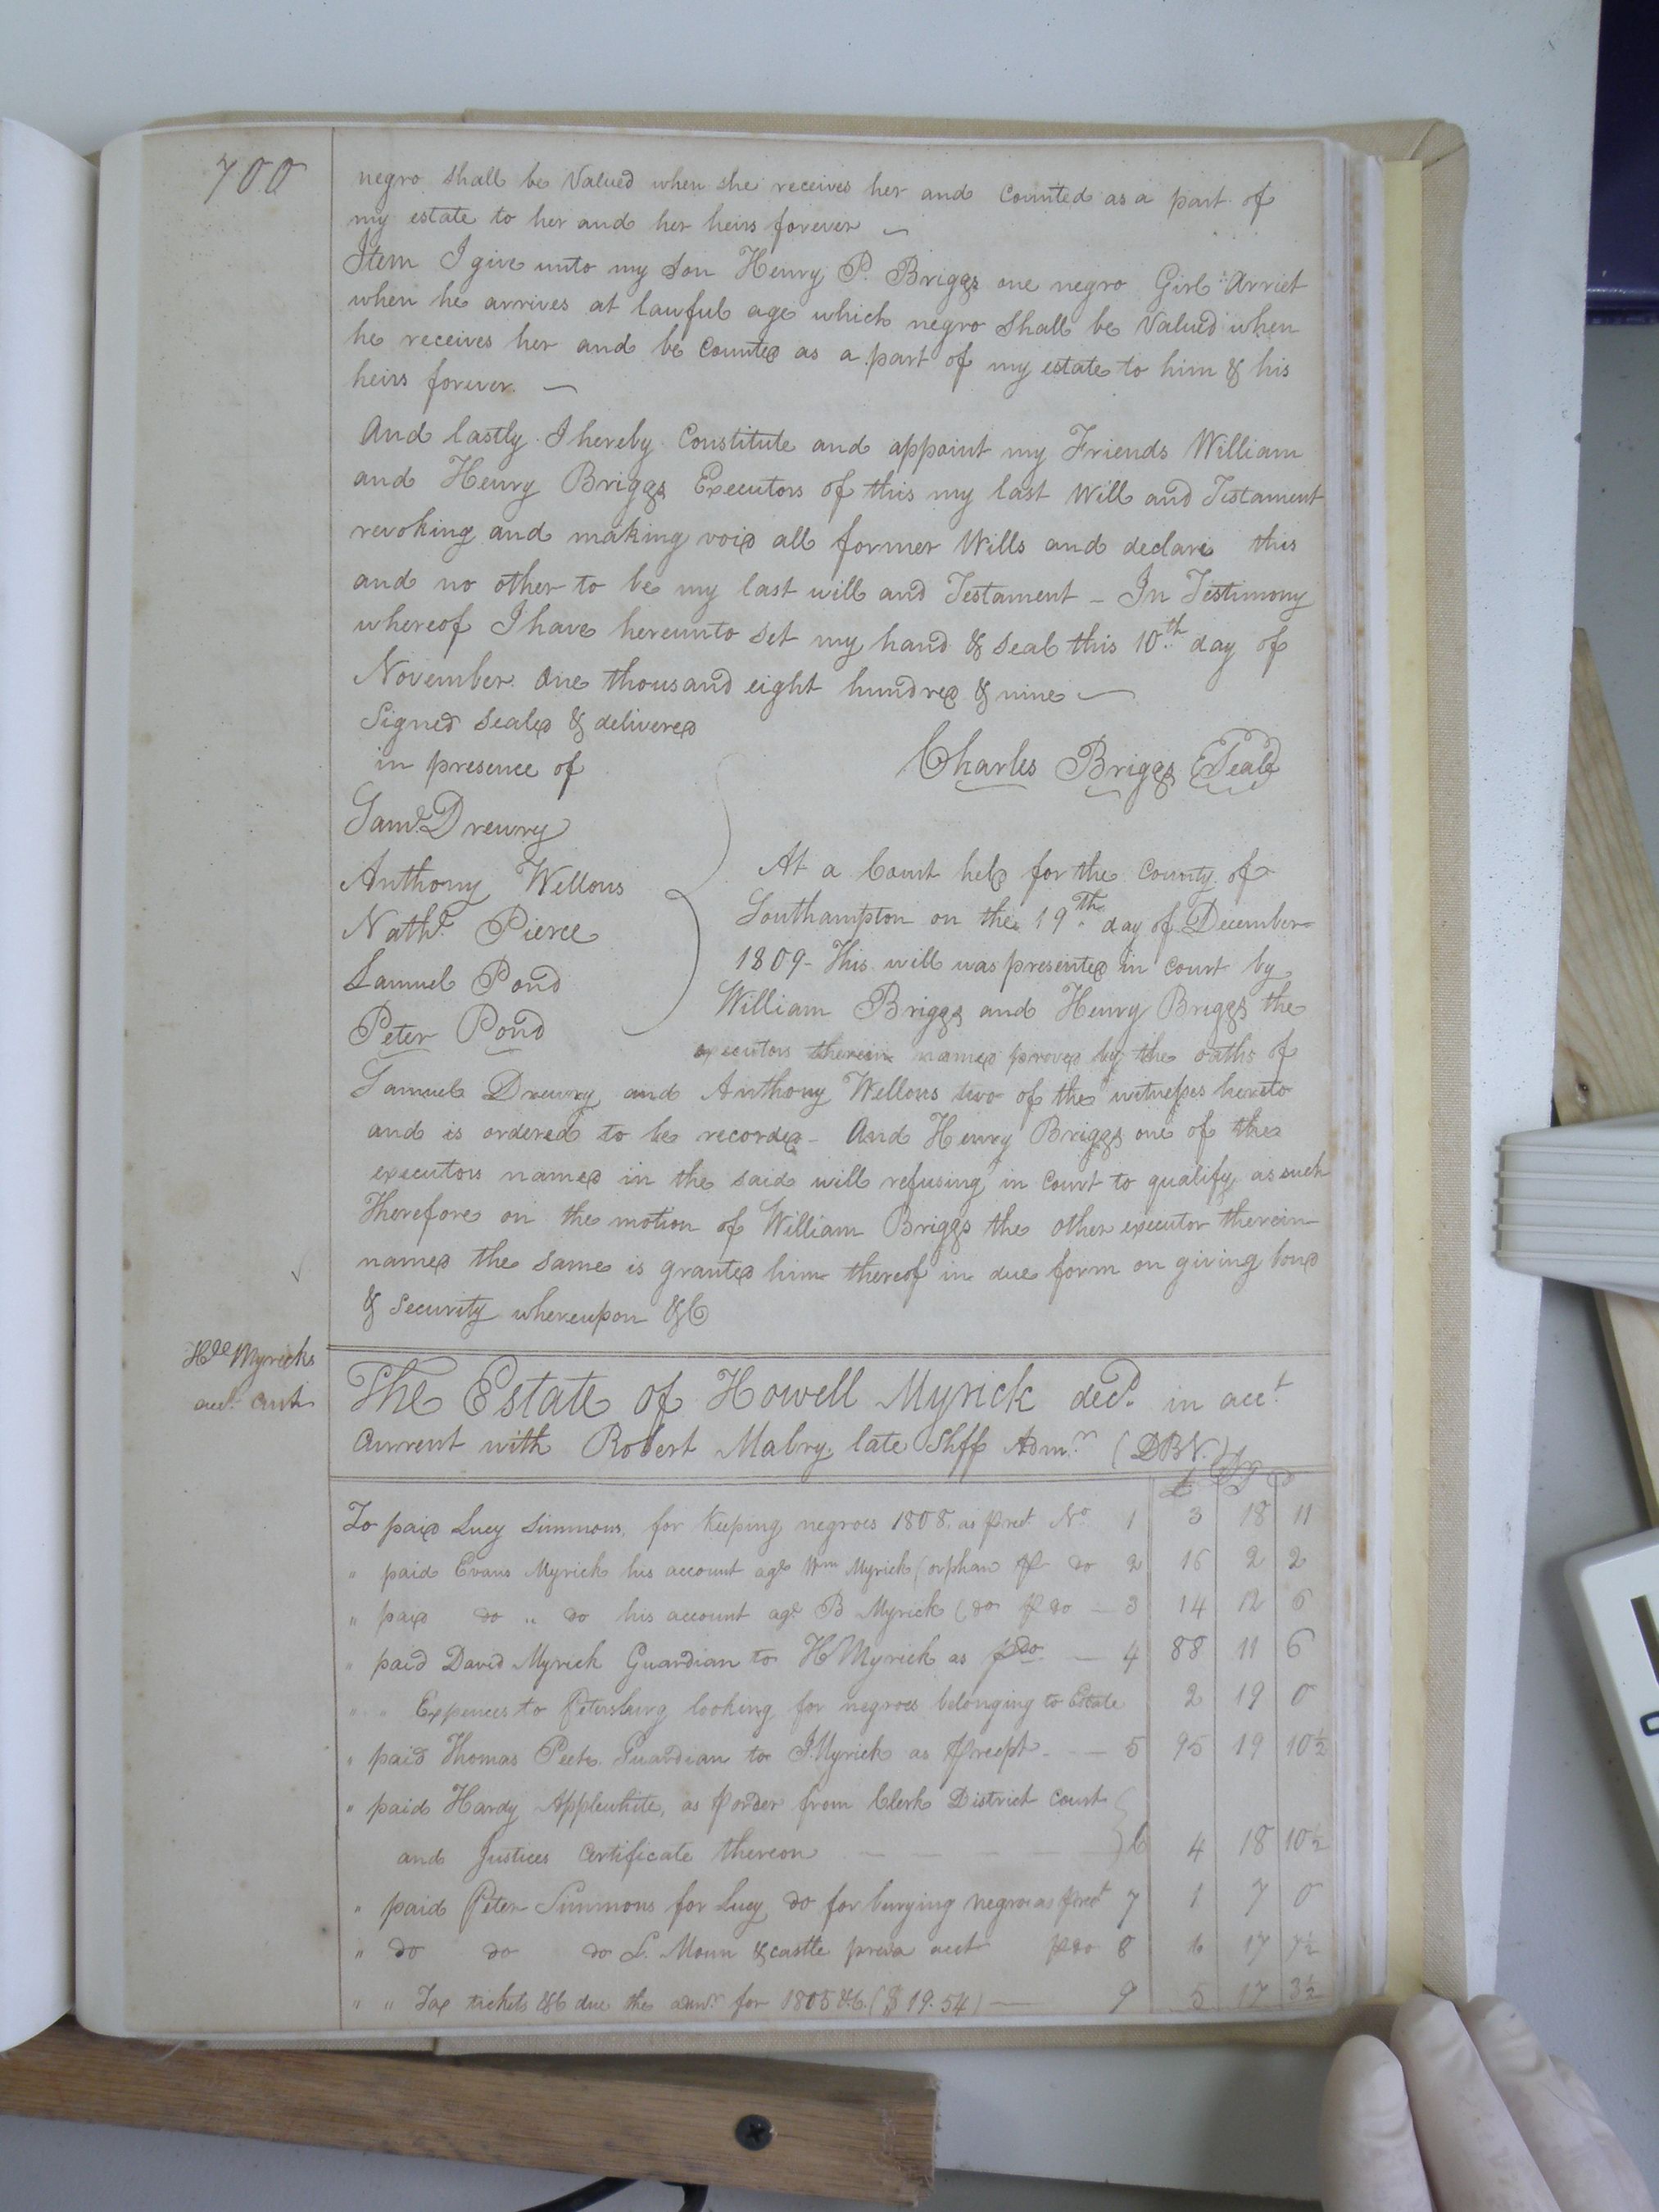 700
negro shall be Valued when she receives her and Counted as a part of
my estate to her and her heirs forever
Item I give unto my son Henry P. Briggs one negro Girl Arriet
when he arrives at lawful age which negro Shall be Valued when
he receives her and be Counted as a part of my estate to him & his
heirs forever
And lastly I hereby Constitute and appoint my Friends William
and Henry Briggs Executors of this my last Will and Testament
revoking and making void all former Wills and declare this
and no other to be my last will and Testament - In Testimony
whereof I have hereunto set my hand & seal this 10th day of
November One thousand eight hundred & nine
Signed Sealed & delivered
in presence of
Charles Briggs Seal
Saml Drewry
Anthony Wellons
Nathl Pierce
Samuel Pond
Peter Pond
At a Court held for the County of
Southampton on the 19th day of December
1809 - This will was presented in Court by
William Briggs and Henry Briggs the
executors therein named proved by the oaths of
Samuel Drewry and Anthony Wellons two of the witnesses hereto
and is ordered to be recorded - And Henry Briggs one of the
executors named in the said will refusing in Court to qualify as such
Therefore on the motion of William Briggs the other executor therein
named the same is granted him thereof in due form on giving bond
& Security whereupon &C
Hll Myricks
The Estate of Howell Myrick decd. in acct.
Current with Robert Mabry late Shff Admr (DBN.) Dr
£ D
To paid Lucy Simmons, for keeping negroes 1808. as pr rect. No 1 3 18 11
" paid Evans Myrick his account agt Wm Myrick (orphan pr do 2 16 2 2
" paid do " do his account agt B Myrick (do pr do - 3 14 12 6
" paid David Myrick Guardian to H Myrick as pr do - 4 88 11 6
" " Expences to Petersburg looking for negroes belonging to Estate 2 19 0
" paid Thomas Peete Guardian to J. Myrick as pr recpt - 5 95 19 10½
" paid Hardy Applewhite, as pr order from Clerk District Court
and Justices Certificate thereon 6 4 18 10½
" paid Peter Simmons for Lucy do for burying negroe as pr rect 7 1 7 0
" do do do & castle acct pr do 8 6 17 7½
" " Tax tickets &C due the admr for 1805 &6. ($ 19.54) - 9 5 17 3½